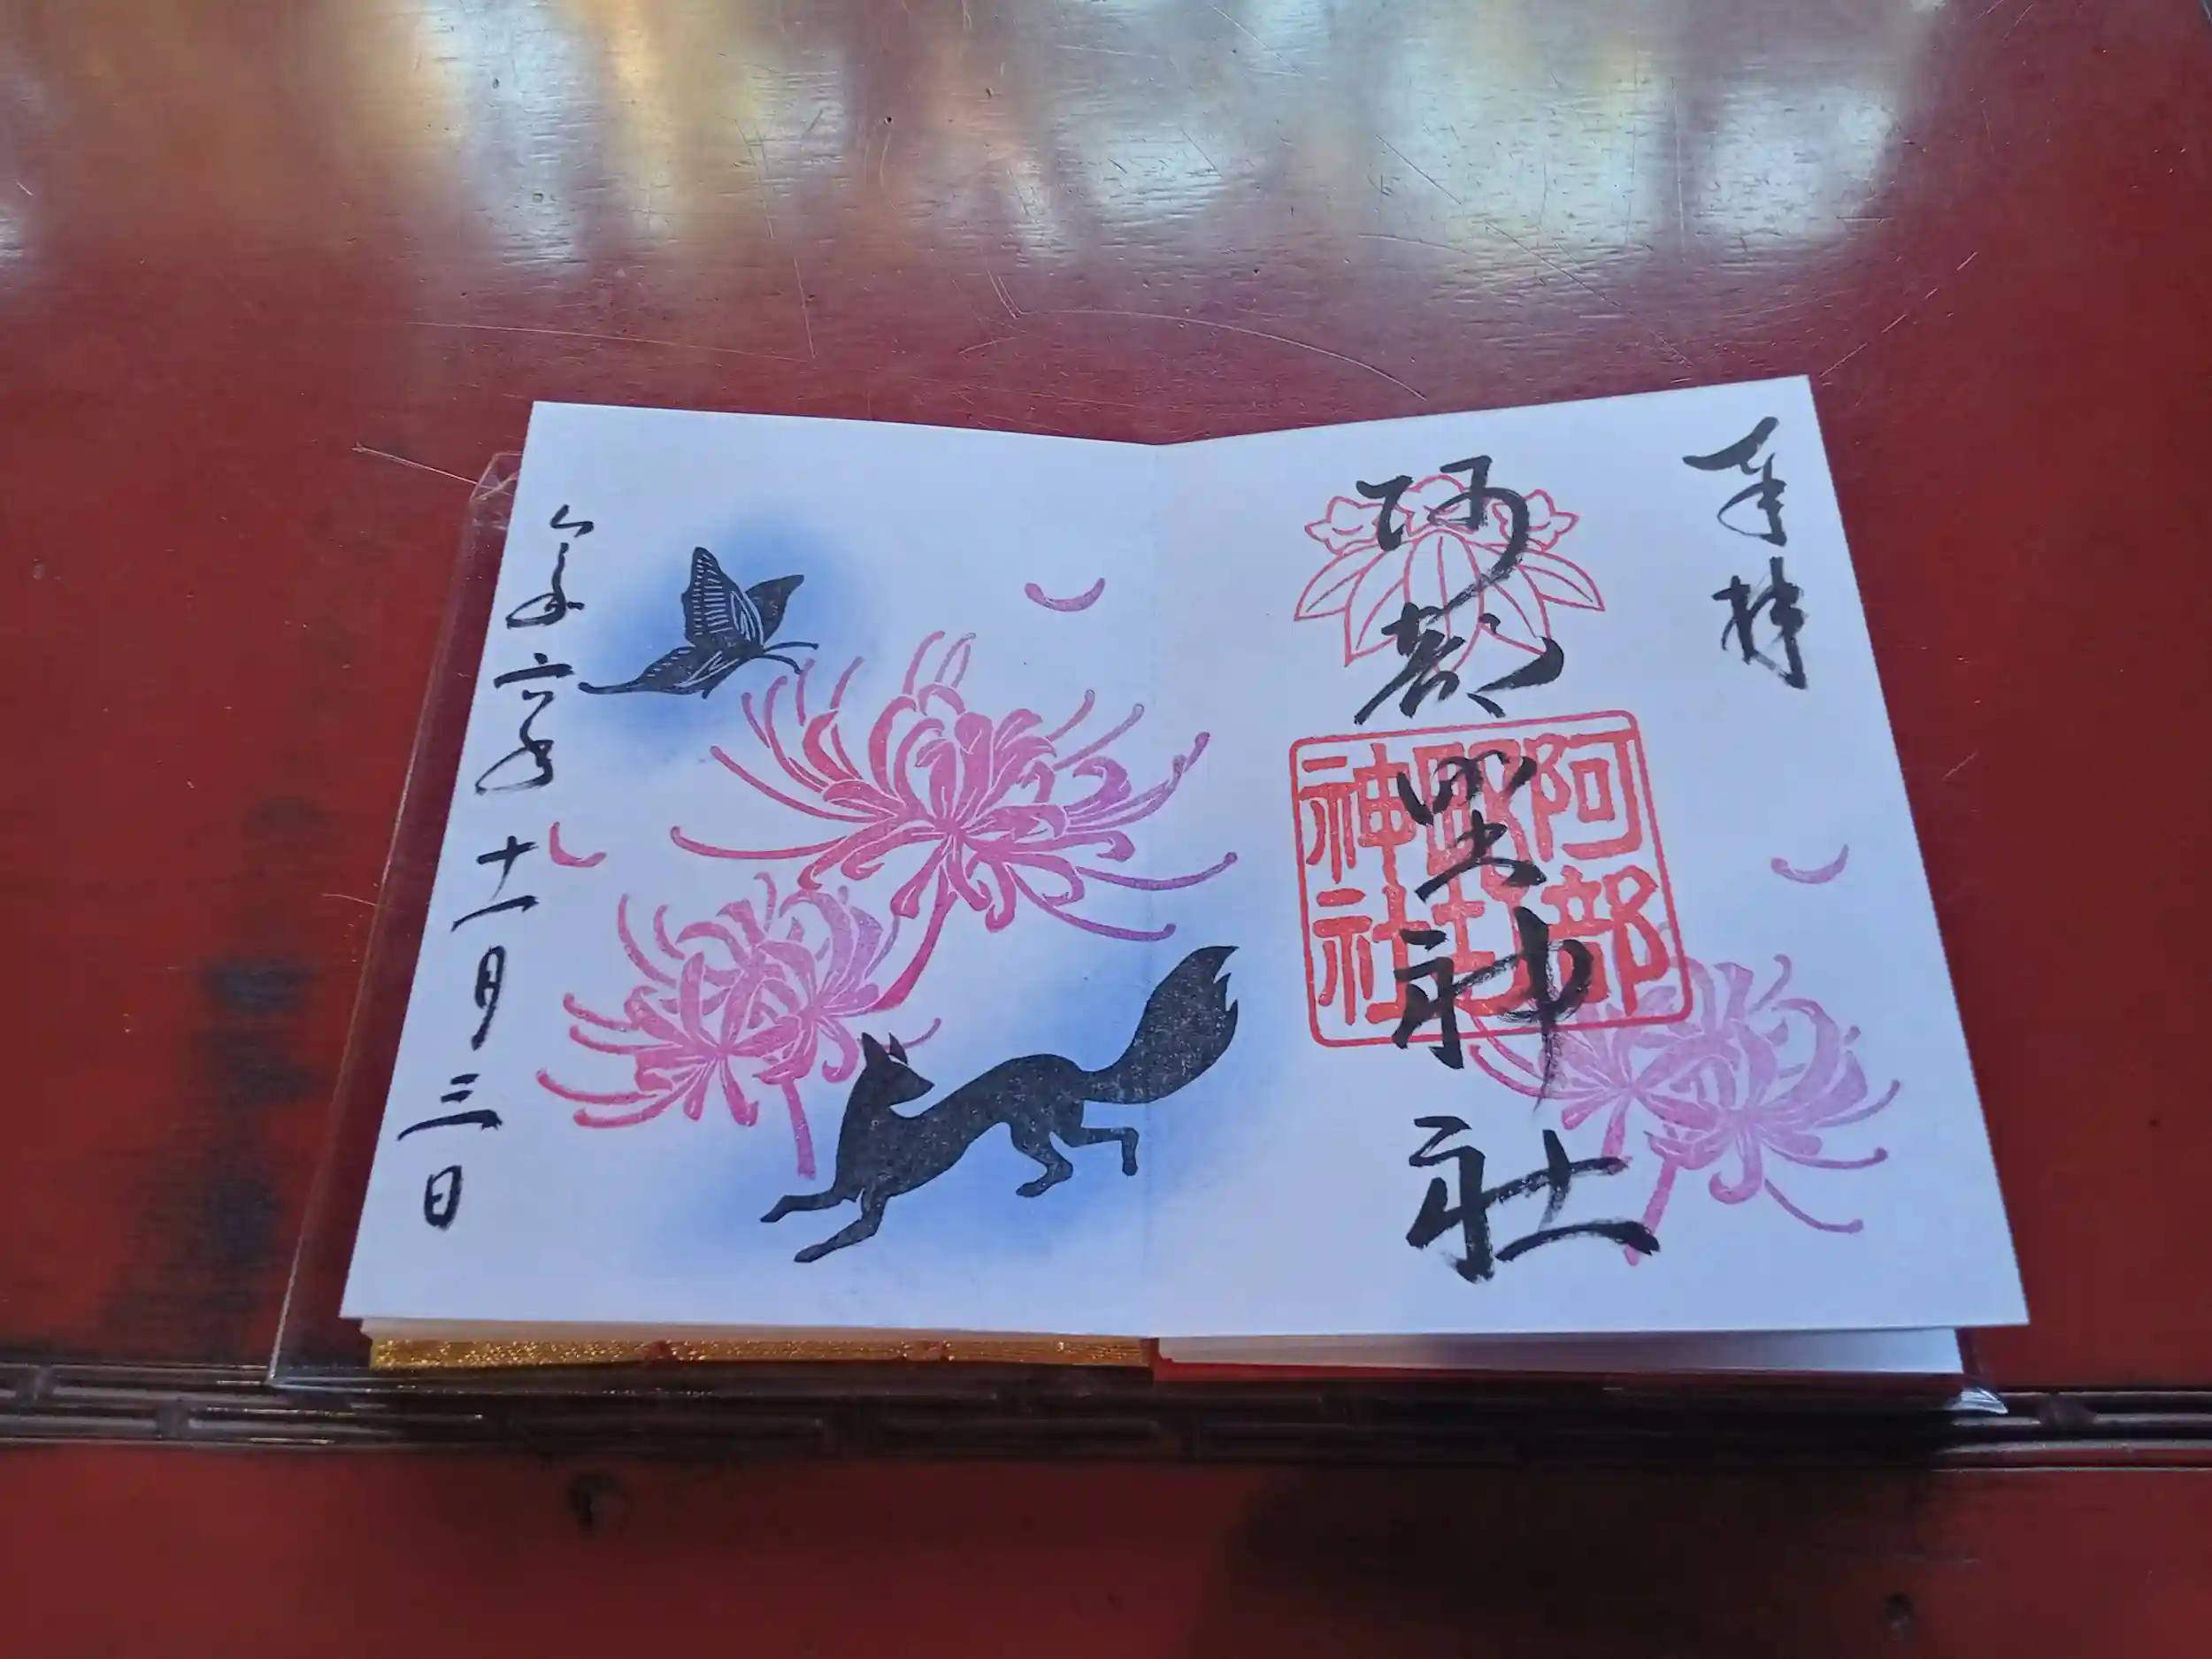 奉拝
阿部野神社
阿部
野
神社
令和六年十一月三日